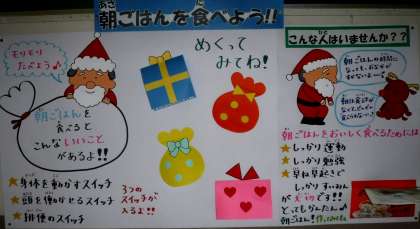 朝ごはんを食べよう!!
モリモリ
たべよう♪
朝ごはんを
食べると
こんないいこと
があるよ!!
★身体を動かすスイッチ
★頭を働かせるスイッチ
★排便のスイッチ
3つの
スイッチが
入るよ!!
めくって
みてね!
こんな人はいませんか??
朝ごはんの時間に
朝ごはんをおいしく食べるためには
★しっかり運動
★しっかり勉強
★早ね早起きで
しっかりすいみん
が大切です!!
とってもかんたん♪
朝ごはん!